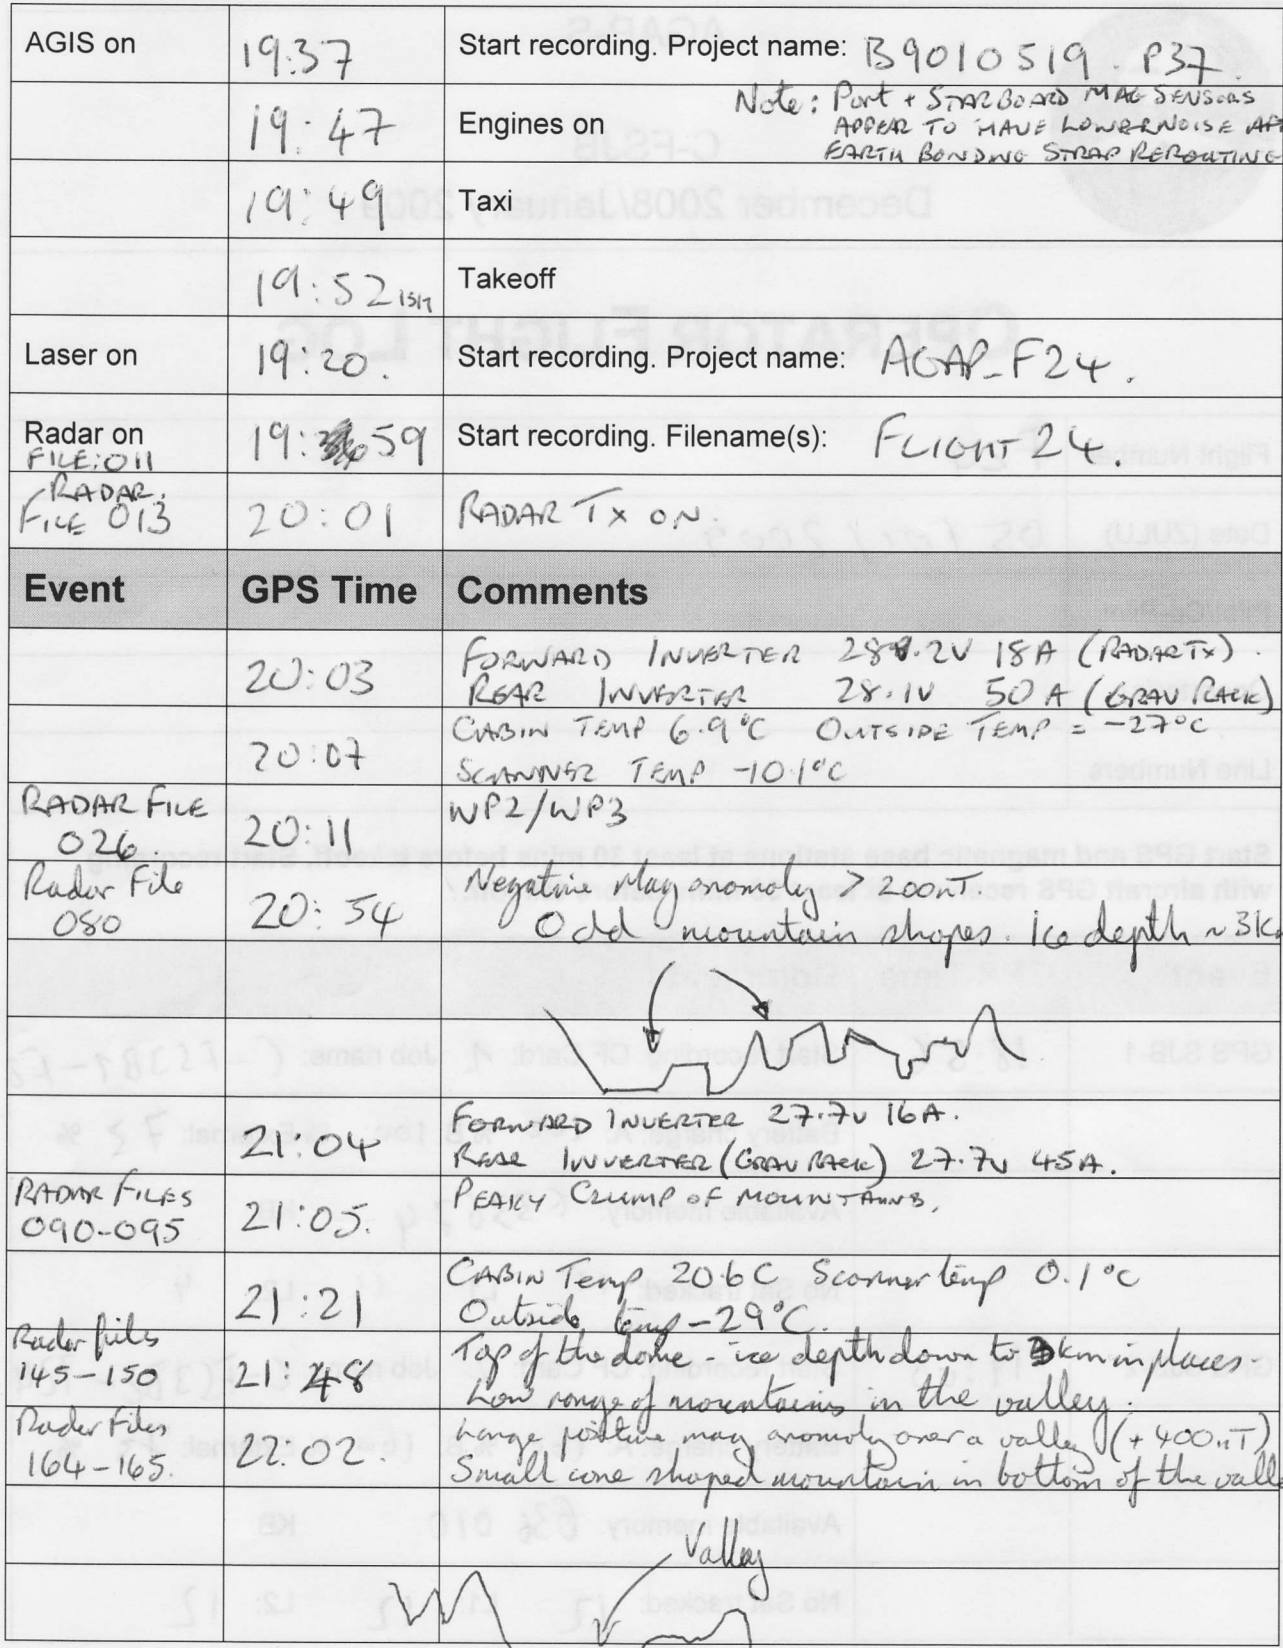 AGIS on 19:37 Start recording. Project name: B9010519.P37.
Note: Port + STARBOARD MAG SENSORS
19:47 Engines on APPEAR TO HAVE LOWER NOISE AFT
EARTH BONDING STRAP REROUTING
19:49 Taxi
19:52 Takeoff
Laser on 19:20. Start recording. Project name: AGAP_F24.
Radar on 19:59 Start recording. Filename(s): FLIGHT 24.
FILE:011
RADAR.
FILE 013 20:01 RADAR Tx ON.
Event GPS Time Comments
FORWARD INVERTER 28.2V 18A (RADAR Tx).
20:03
REAR INVERTER 28.1V 50A (GRAV RACK)
CABIN TEMP 6.9°C OUTSIDE TEMP = -27°C
20:07
SCANNER TEMP -10.1°C
RADAR FILE WP2/WP3
026. 20:11
Radar File Negative Mag anomoly > 200nT.
080 20:54 Odd mountain shapes. Ice depth ~3k
FORWARD INVERTER 27.7V 16A.
21:04
REAR INVERTER (GRAV RACK) 27.7V 45A.
RADAR FILES PEAKY CLUMP OF MOUNTAINS.
090-095 21:05.
CABIN Temp 20.6C Scanner temp 0.1°C
21:21
Outside temp -29°C.
Radar files Top of the dome - ice depth down to 3km in places.
145-150 21:48 Low range of mountains in the valley.
Radar Files Large positive mag anomoly over a valley (+400nT)
164-165. 22:02. Small cone shaped mountain in bottom of the valle
Valley